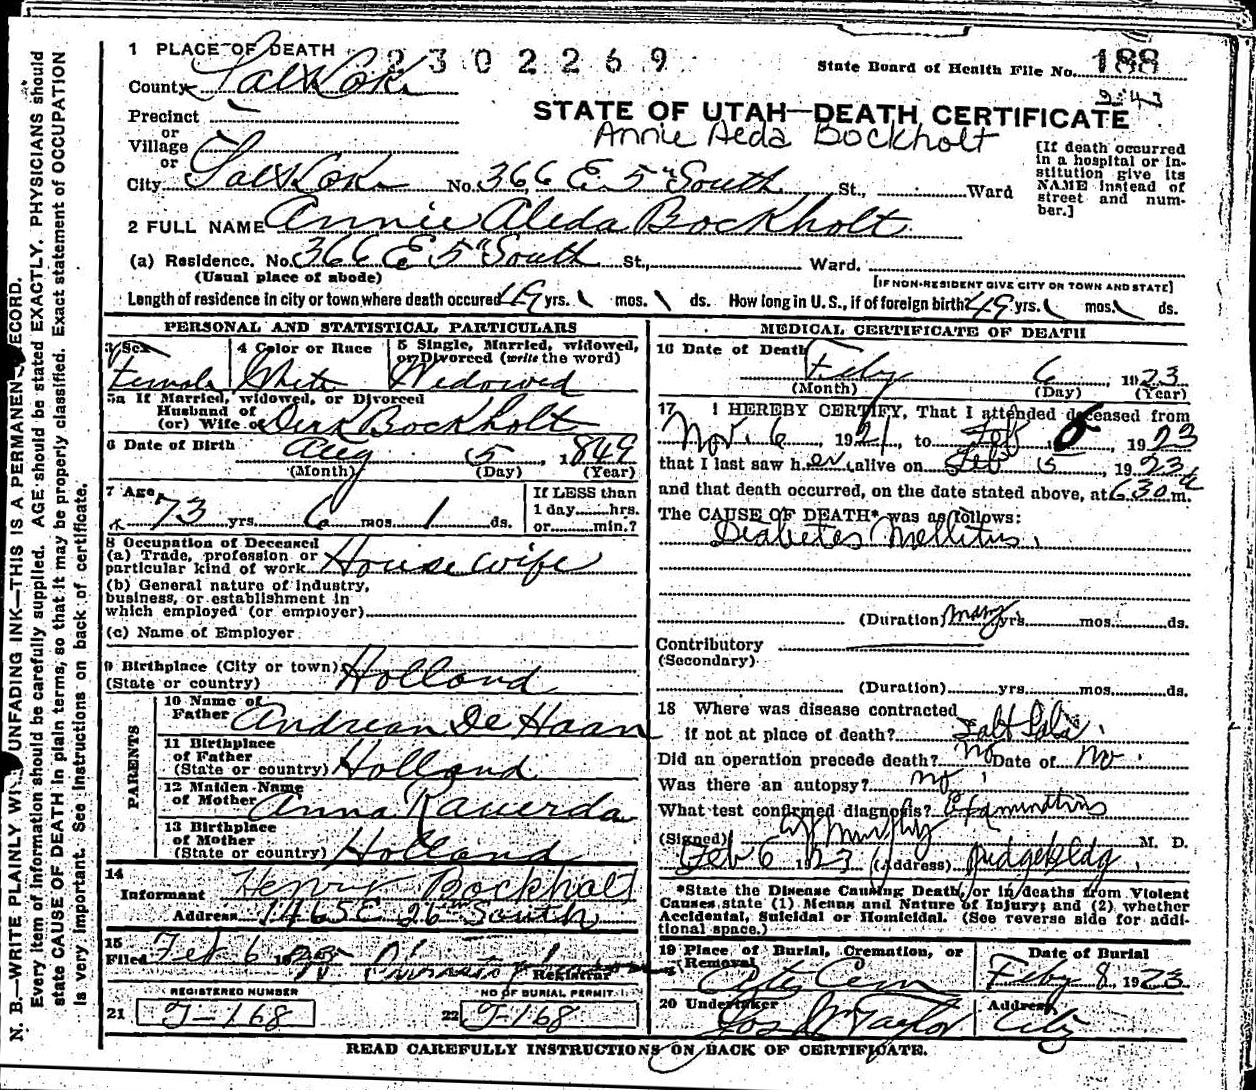 N. B.—WRITE PLAINLY WITH UNFADING INK—THIS IS A PERMANENT RECORD.
Every item of information should be carefully supplied. AGE should be stated EXACTLY. PHYSICIANS should
state CAUSE OF DEATH in plain terms, so that it may be properly classified. Exact statement of OCCUPATION
is very important. See instructions on back of certificate.
1 PLACE OF DEATH 2302269
State Board of Health File No. 188
County Salt Lake
243
STATE OF UTAH—DEATH CERTIFICATE
Precinct
Annie Aeda Bockholt
or
Village
or
[If death occurred
in a hospital or in-
stitution give its
NAME instead of
street and num-
ber.]
City Salt Lake No. 366 E 5" South St., Ward
2 FULL NAME Annie Aleda Bockholt
(a) Residence. No. 366 E 5" South St., Ward.
(Usual place of abode) [IF NON-RESIDENT GIVE CITY OR TOWN AND STATE]
Length of residence in city or town where death occured 49 yrs. mos. ds. How long in U.S., if of foreign birth? 49 yrs. mos. ds.
PERSONAL AND STATISTICAL PARTICULARS
3 Sex 4 Color or Race 5 Single, Married, widowed,
or Divorced (write the word)
Female White Widowed
5a If Married, widowed, or Divorced
Husband of
(or) Wife of Dirk Bockholt
6 Date of Birth Aug 5, 1849
(Month) (Day) (Year)
7 Age 73 yrs. 6 mos. 1 ds.
If LESS than
1 day......hrs.
or......min.?
8 Occupation of Deceased
(a) Trade, profession or
particular kind of work Housewife
(b) General nature of industry,
business, or establishment in
which employed (or employer)
(c) Name of Employer
9 Birthplace (City or town)
(State or country) Holland
PARENTS
10 Name of
Father Andrean De Haan
11 Birthplace
of Father
(State or country) Holland
12 Maiden Name
of Mother Anna Rauerda
13 Birthplace
of Mother
(State or country) Holland
14
Informant Henry Bockholt
Address 1465 E 26" South
15
Filed Feb 6 1923
Registrar
REGISTERED NUMBER NO OF BURIAL PERMIT
21 J-168 22 J-168
MEDICAL CERTIFICATE OF DEATH
16 Date of Death
Feby 6, 1923
(Month) (Day) (Year)
17 I HEREBY CERTIFY, That I attended deceased from
Nov. 6, 1921, to Feb 5 1923
that I last saw her alive on Feb 5, 1923
and that death occurred, on the date stated above, at 630 a m.
The CAUSE OF DEATH* was as follows:
Diabetes Mellitus.
(Duration) many yrs. mos. ds.
Contributory
(Secondary)
(Duration) yrs. mos. ds.
18 Where was disease contracted
if not at place of death? Salt Lake.
Did an operation precede death? no Date of no.
Was there an autopsy? no
What test confirmed diagnosis? Examinations
(Signed) Murphy M. D.
Feb 6 1923 (Address) Judge Bldg.
*State the Disease Causing Death, or in deaths from Violent
Causes, state (1) Means and Nature of Injury; and (2) whether
Accidental, Suicidal or Homicidal. (See reverse side for addi-
tional space.)
19 Place of Burial, Cremation, or
Removal
Date of Burial
City Cem Feby 8, 1923
20 Undertaker Address
Jos Wm Taylor City
READ CAREFULLY INSTRUCTIONS ON BACK OF CERTIFICATE.